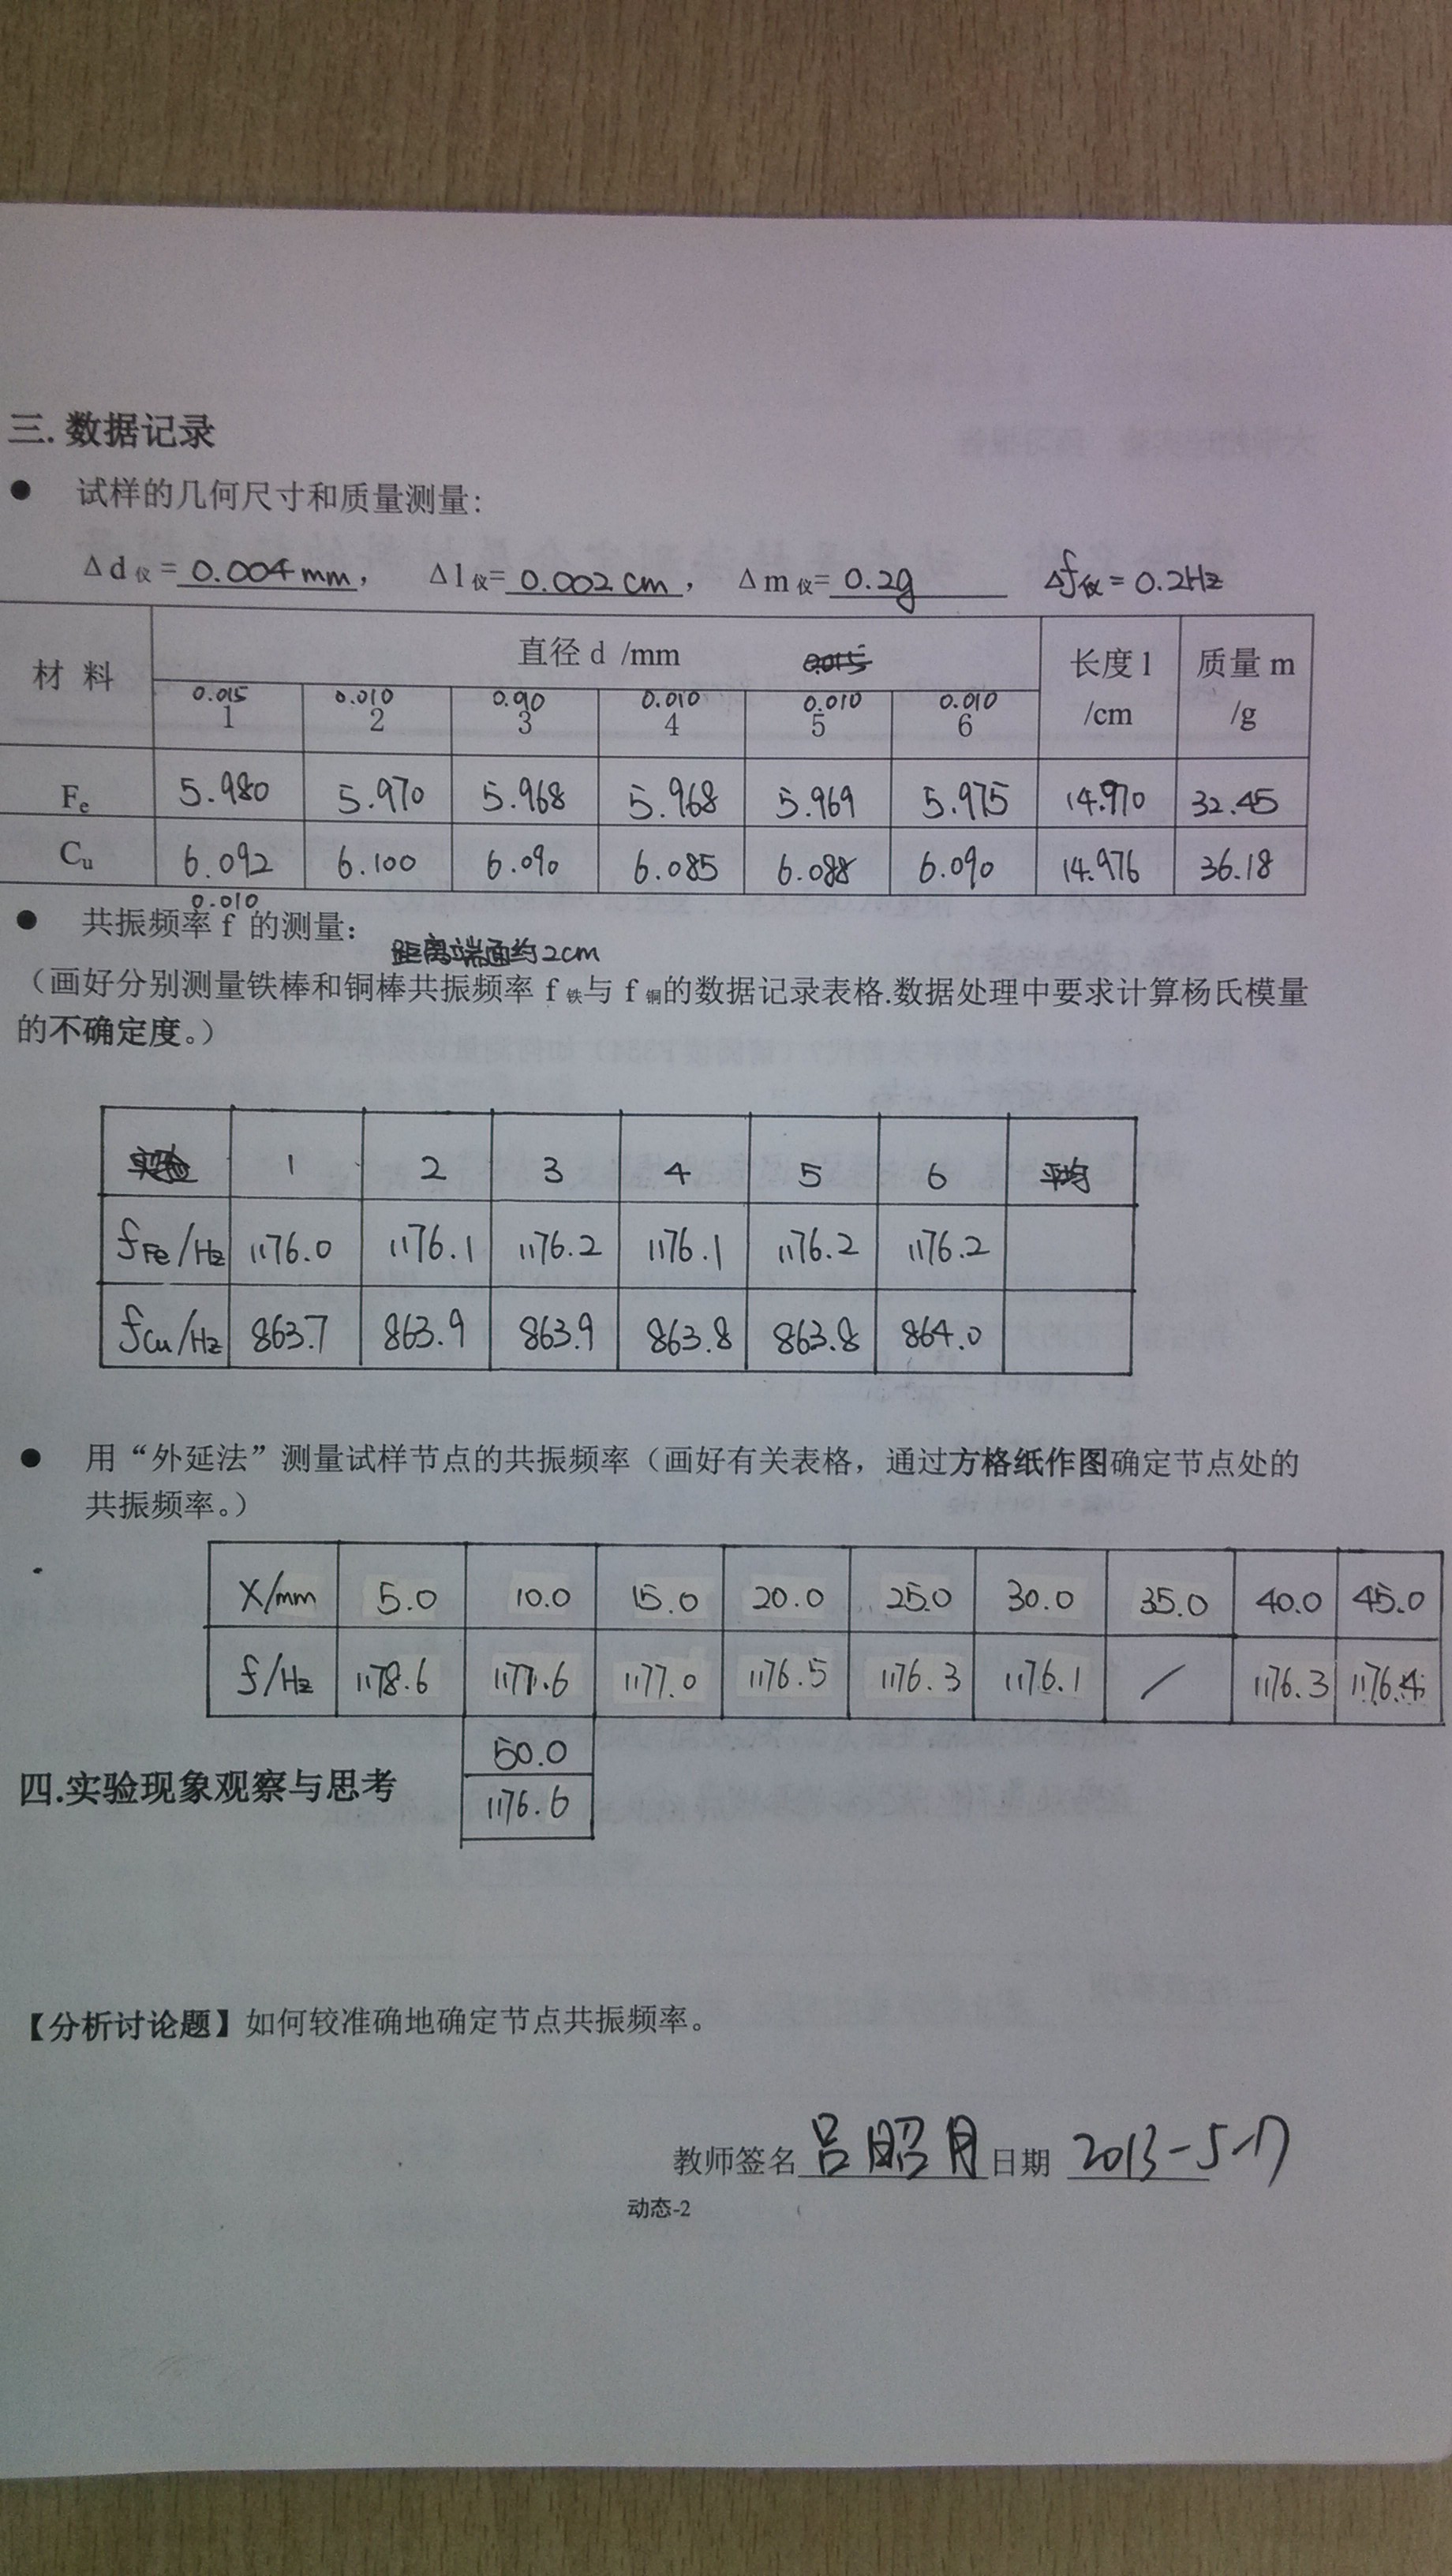 三. 数据记录
● 试样的几何尺寸和质量测量:
Δd仪=0.004mm, Δl仪=0.002cm, Δm仪=0.2g Δf仪=0.2Hz
材 料 直径 d /mm 0.015 长度 l /cm 质量 m /g
0.015 0.010 0.90 0.010 0.010 0.010
1 2 3 4 5 6
Fe 5.980 5.970 5.968 5.968 5.969 5.975 14.970 32.45
Cu 6.092 6.100 6.090 6.085 6.088 6.090 14.976 36.18
0.010
● 共振频率 f 的测量:
距离端面约2cm
（画好分别测量铁棒和铜棒共振频率 f铁与 f铜的数据记录表格.数据处理中要求计算杨氏模量
的不确定度。）
实验 1 2 3 4 5 6 平均
fFe/Hz 1176.0 1176.1 1176.2 1176.1 1176.2 1176.2
fCu/Hz 863.7 863.9 863.9 863.8 863.8 864.0
● 用“外延法”测量试样节点的共振频率（画好有关表格，通过方格纸作图确定节点处的
共振频率。）
X/mm 5.0 10.0 15.0 20.0 25.0 30.0 35.0 40.0 45.0
f/Hz 1178.6 1177.6 1177.0 1176.5 1176.3 1176.1 / 1176.3 1176.4
50.0
1176.6
四.实验现象观察与思考
【分析讨论题】如何较准确地确定节点共振频率。
教师签名 吕昭月 日期 2013-5-17
动态-2